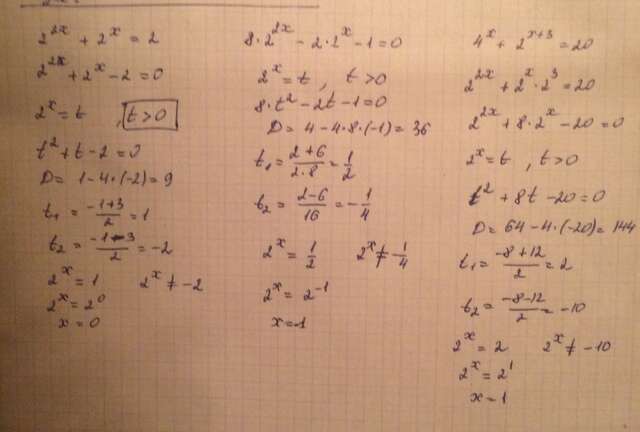 2^{2x} + 2^x = 2
2^{2x} + 2^x - 2 = 0
2^x = t , t > 0
t^2 + t - 2 = 0
D = 1 - 4 \cdot (-2) = 9
t_1 = \frac{-1+3}{2} = 1
t_2 = \frac{-1-3}{2} = -2
2^x = 1 2^x ≠ -2
2^x = 2^0
x = 0
8 \cdot 2^{2x} - 2 \cdot 2^x - 1 = 0
2^x = t , t > 0
8 \cdot t^2 - 2t - 1 = 0
D = 4 - 4 \cdot 8 \cdot (-1) = 36
t_1 = \frac{2+6}{2 \cdot 8} = \frac{1}{2}
t_2 = \frac{2-6}{16} = -\frac{1}{4}
2^x = \frac{1}{2} 2^x ≠ -\frac{1}{4}
2^x = 2^{-1}
x = -1
4^x + 2^{x+3} = 20
2^{2x} + 2^x \cdot 2^3 = 20
2^{2x} + 8 \cdot 2^x - 20 = 0
2^x = t , t > 0
t^2 + 8t - 20 = 0
D = 64 - 4 \cdot (-20) = 144
t_1 = \frac{-8+12}{2} = 2
t_2 = \frac{-8-12}{2} = -10
2^x = 2 2^x ≠ -10
2^x = 2^1
x = 1